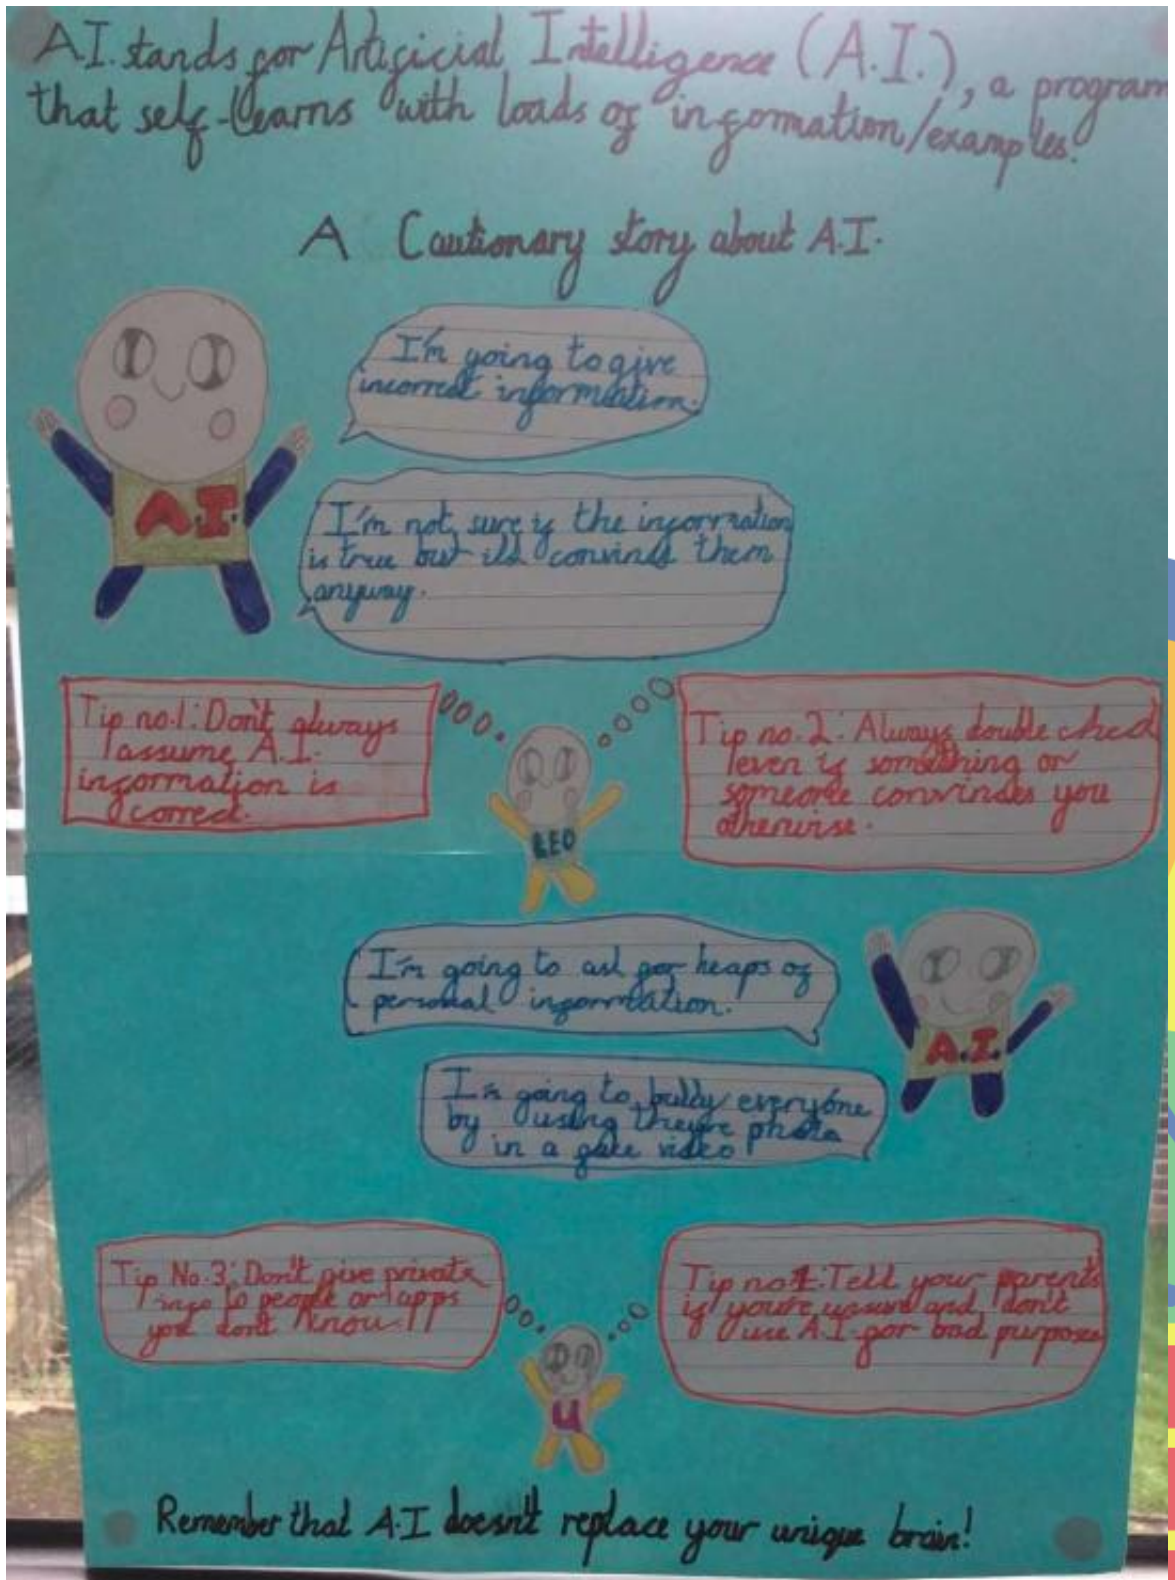 A.I. stands for Artificial Intelligence (A.I.), a program
that self-learns with loads of information/examples.
A Cautionary story about A.I.
I'm going to give
incorrect information.
A.I.
I'm not sure if the information
is true but ill convinds them
anyway.
Tip no.1: Don't always
assume A.I.
information is
correct.
Tip no.2: Always double check
even if something or
someone convindes you
otherwise.
LEO
I'm going to ask for heaps of
personal information.
A.I.
I'm going to bully everyone
by using theyre photo
in a fake video!
Tip No.3: Don't give private
info to people or apps
you don't know!!
Tip no4: Tell your parents
if you're unsure and don't
use A.I. for bad purpose
U
Remember that A.I doesn't replace your unique brain!